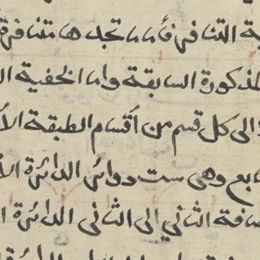 ية التنافر فأما ما تجدها متنافرة
المذكورة السابقة واما الخفية
الى كل قسم من أقسام الطبقة الأ
ابع وهي ست دوائر الدائرة الأ
ضافة الثاني الى الثاني الدائرة